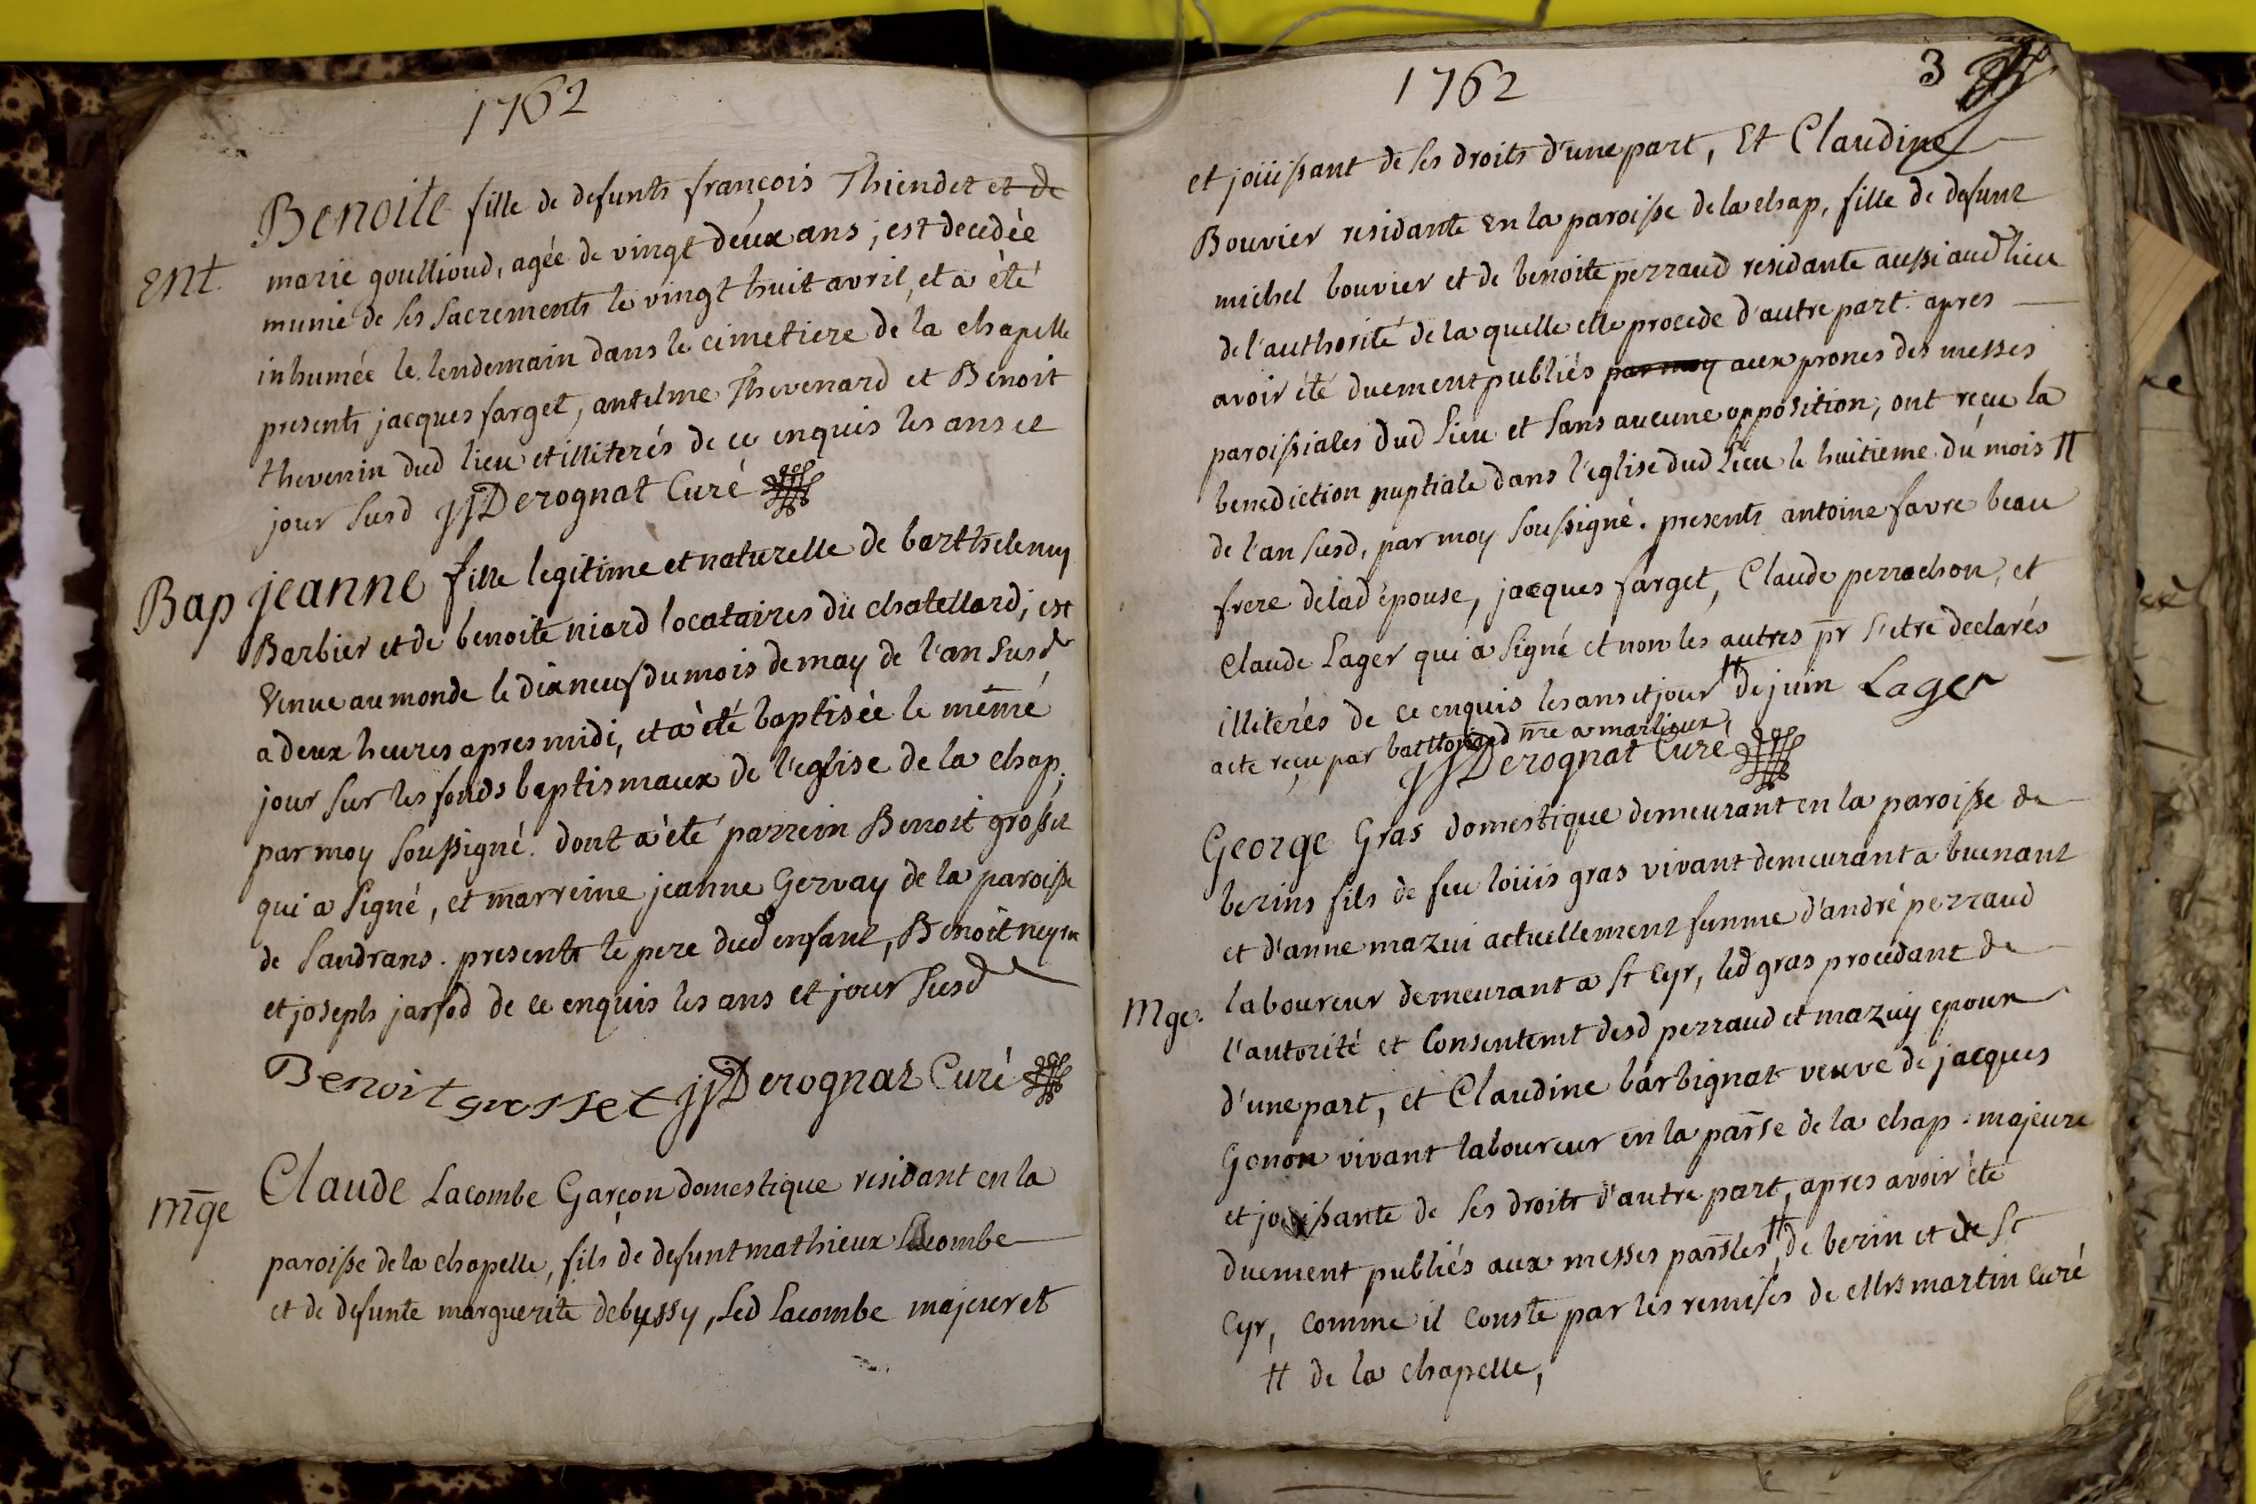 1762
Benoite fille de defunts françois Thiendet et de
ent. marie goullioud, agée de vingt deux ans, est decedée
munie de ses sacrements le vingt huit avril, et a été
inhumée le lendemain dans le cimetiere de la chapelle
presents jacques farget, antelme Thevenard et Benoit
thevenin dud lieu et illiterés de ce enquis les ans et
jour susd JJDerognat Curé
Bap jeanne fille legitime et naturelle de barthelemy
Barbier et de benoite niard locataires du chatellard, est
venue au monde le dix neuf du mois de may de l'an susd
a deux heures apres midi, et a été baptisée le même
jour sur les fonds baptismaux de l'eglise de la chap,
par moy soussigné. dont a été parrein Benoit grosset
qui a signé, et marreine jeanne Gervay de la paroisse
de Sandrans. presents le pere dud enfant, Benoit
et joseph de ce enquis les ans et jour susd
Benoit grosset JJDerognat Curé
mge Claude Lacombe Garçon domestique residant en la
paroisse de la chapelle, fils de defunt mathieux Lacombe
et de defunte marguerite debussy, led Lacombe majeur et
1762
3
et joüissant de ses droits d'une part, Et Claudine
Bouvier residante en la paroisse de la chap, fille de defunt
michel bouvier et de benoite perraud residante aussi aud lieu
de l'authorité de la quelle elle procede d'autre part. apres
avoir été duement publiés par moy aux prones des messes
paroissiales dud lieu et sans aucune opposition, ont reçu la
benediction nuptiale dans l'eglise dud lieu le huitieme du mois #
de l'an susd, par moy soussigné. presents antoine favre beau
frere de lad épouse, jacques farget, Claude perrachon, et
Claude Lager qui a signé et non les autres pr s'etre declarés
illiterés de ce enquis les ans et jour # de juin Lager
acte reçu par nre a marlieux,
JJDerognat Curé
George Gras domestique demeurant en la paroisse de
berins fils de feu loüis gras vivant demeurant a buenant
et d'anne mazui actuellement femme d'andré perraud
mge. laboureur demeurant a st Cyr, led gras procédant de
l'autorité et Consentemt desd perraud et mazuy epoux
d'une part, et Claudine barbignat veuve de jacques
Genon vivant laboureur en la parsse de la chap. majeure
et joüissante de ses droits d'autre part, apres avoir été
duement publiés aux messes parsles # de berin et de St
Cyr, comme il conste par les remises de Mrs martin Curé
# de la chapelle,